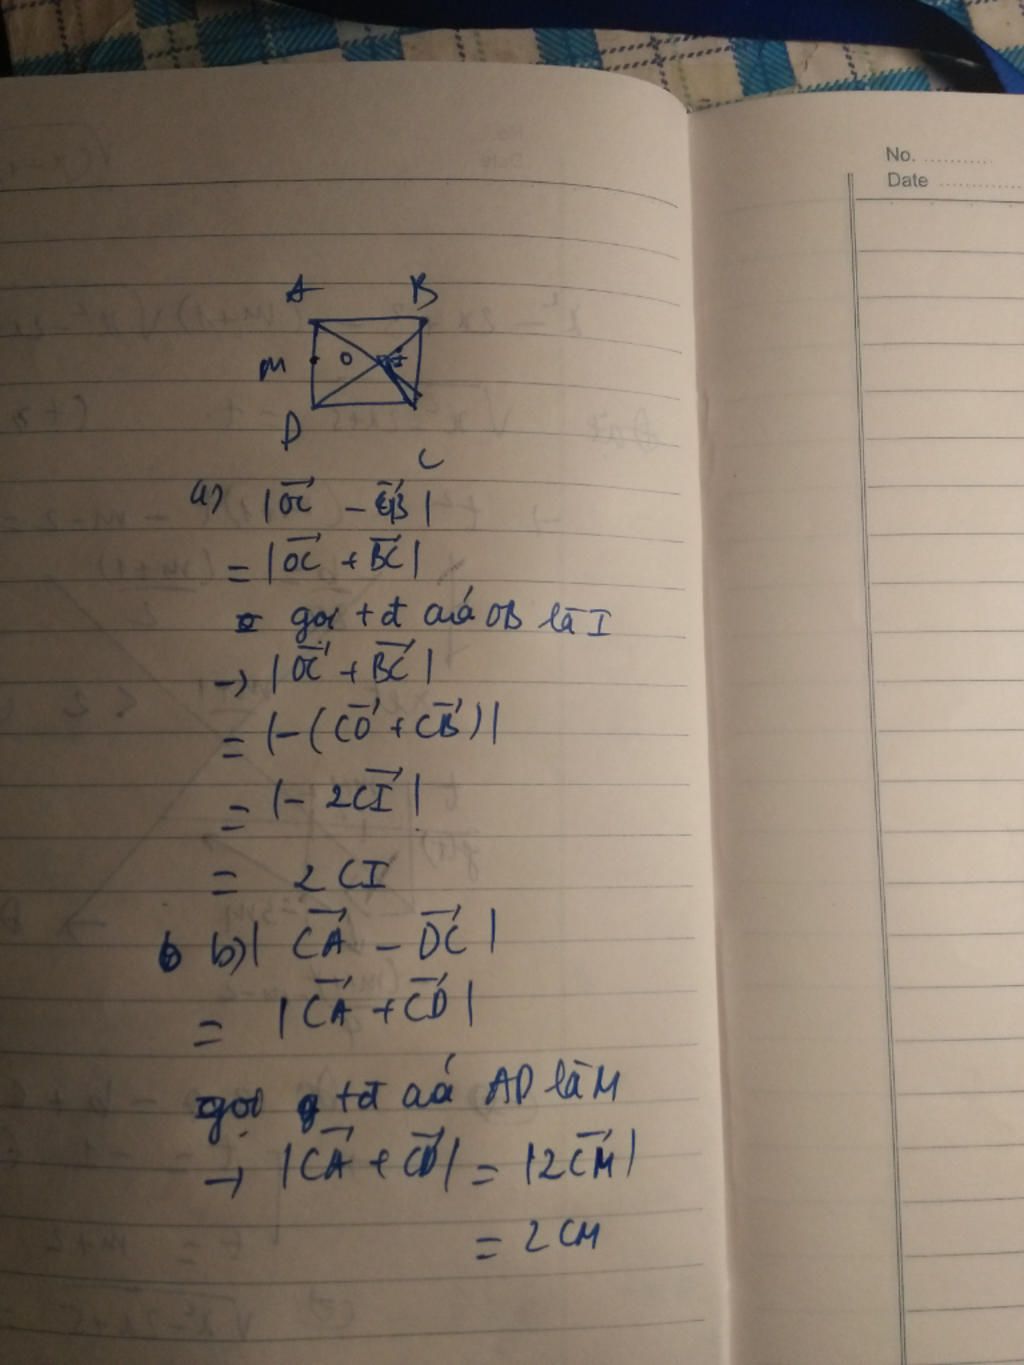 No. ............
Date ...............
A B
M O I
D
C
a) |OC→ - CB→|
= |OC→ + BC→|
gọi tđ của OB là I
→ |OC→ + BC→|
= |-(CO→ + CB→)|
= |- 2CI→|
= 2CI
b) |CA→ - DC→|
= |CA→ + CD→|
gọi tđ của AD là M
→ |CA→ + CD→| = |2CM→|
= 2CM